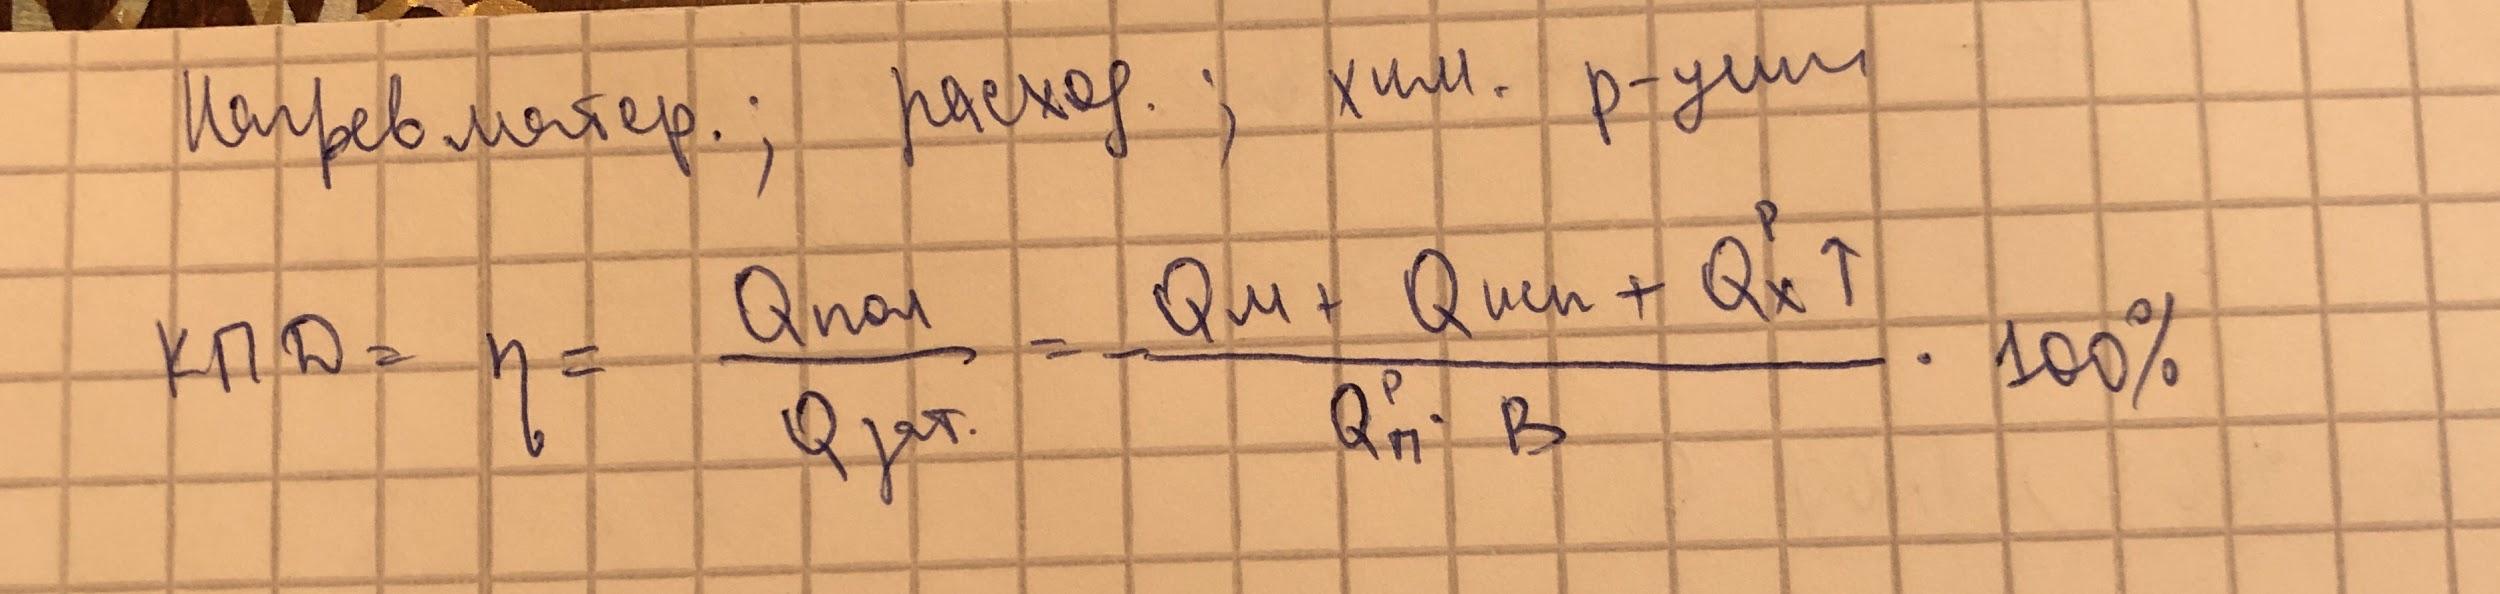 Нагрев матер.; расход.; хим. р-уии
КПД = η = Qпол / Qзат. = Qм + Qисп + Qх^р↑ / Qп^р · В · 100%